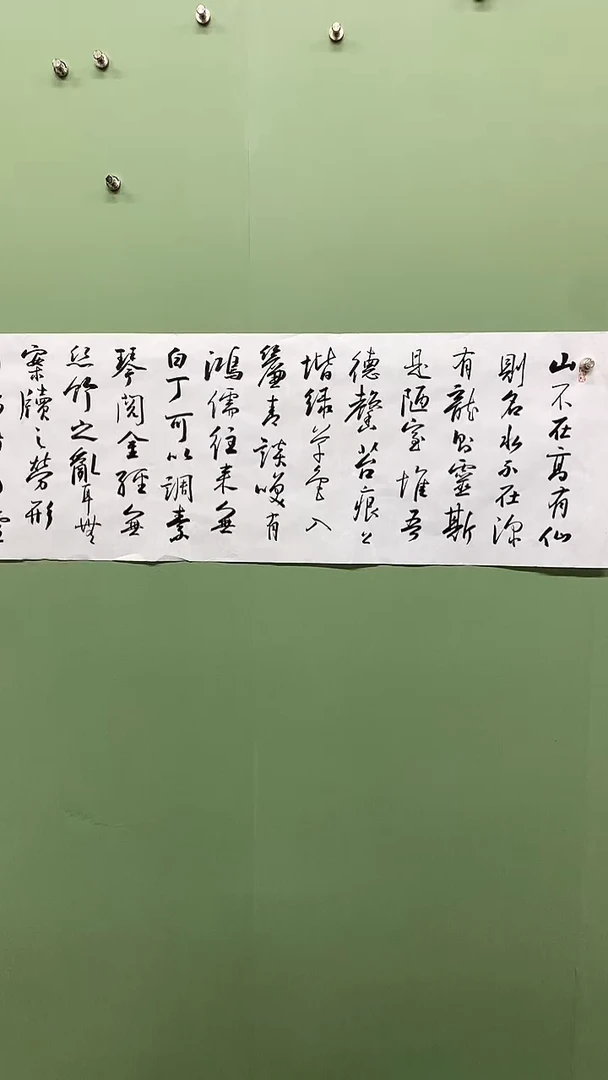 山不在高有仙
則名水不在深
有龍則靈斯
是陋室惟吾
德馨苔痕上
堦緑草色入
簾青談笑有
鴻儒往来無
白丁可以調素
琴閲金經無
絲竹之亂耳無
案牘之勞形